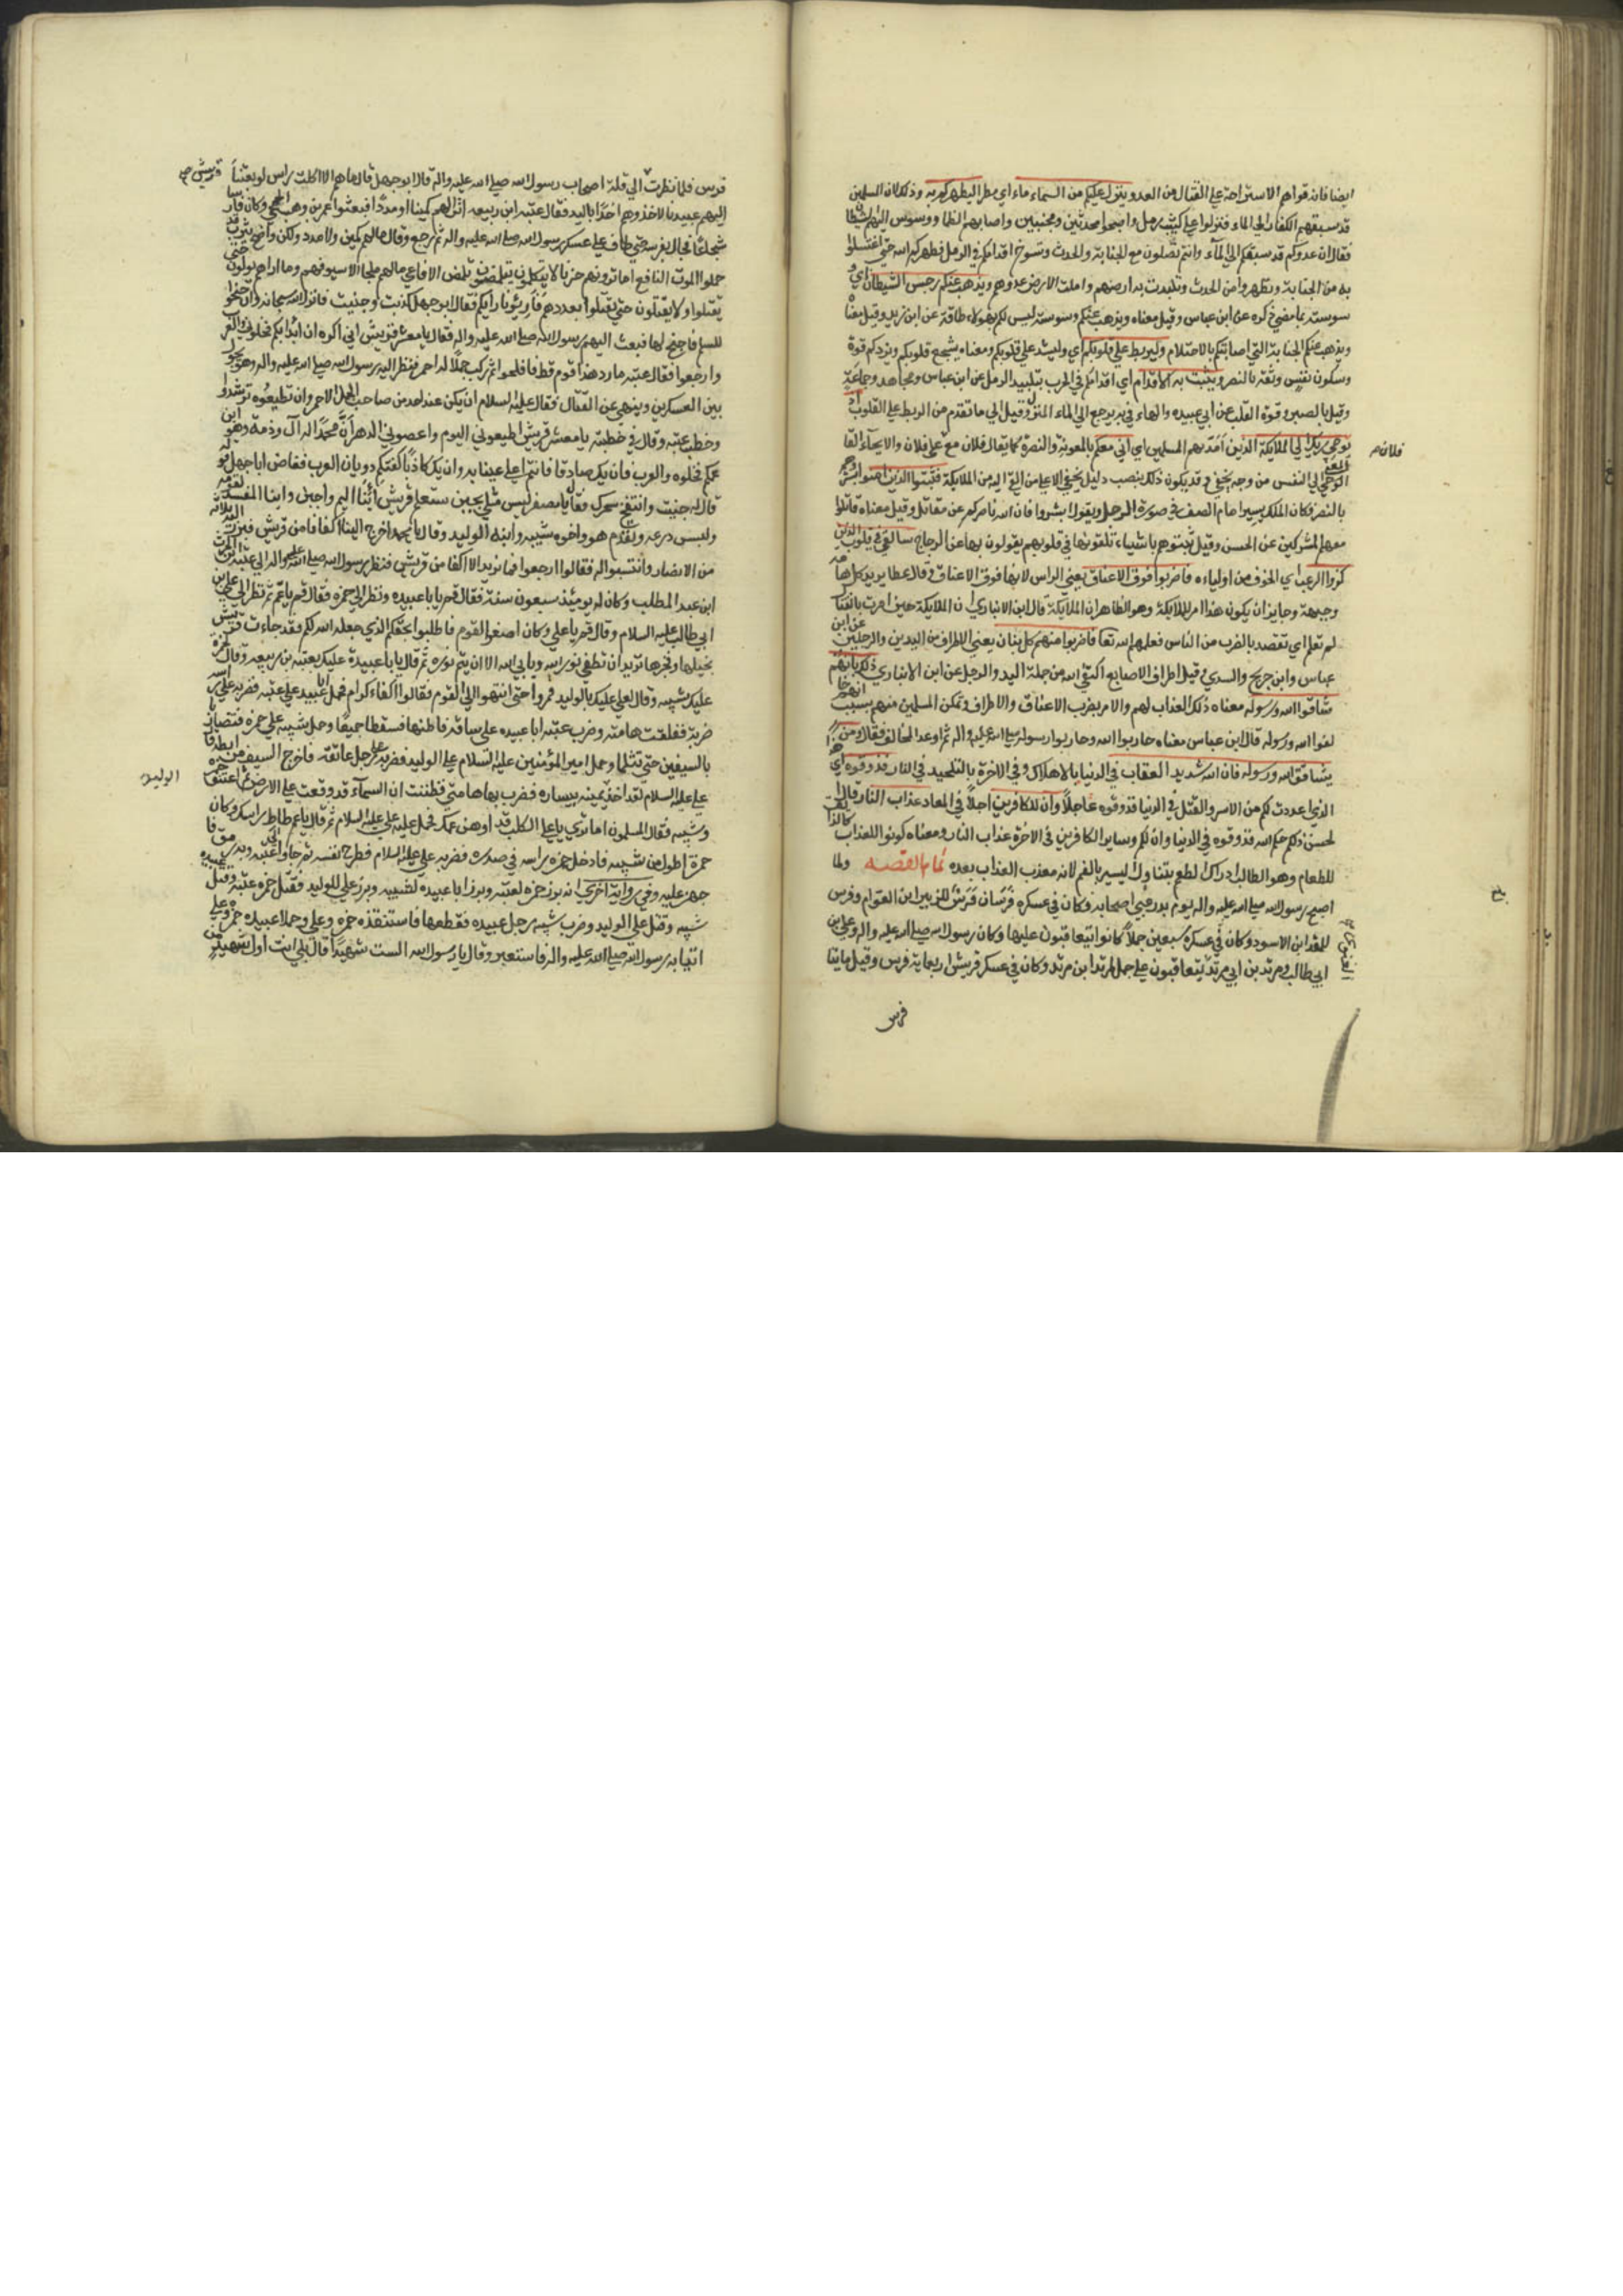 ايضا فانه قواهم الاستراحة على القتال من العدو وينزل عليكم من السماء ماء اي مطرا ليطهركم به وذلك لان المسلمين
قد سبقهم الكفار الى الماء فنزلوا على كثيب رمل واصبحوا محدثين ومجنبين واصابهم الظما ووسوس اليهم الشيطان
فقال ان عدوكم قد سبقكم الى الماء وانتم تصلون مع الجنابة والحدث وتسوخ اقدامكم في الرمل فطهركم الله حتى اغتسلوا
به من الجنابة وتطهروا من الحدث وتلبدت به ارضهم واوحلت ارض عدوهم ويذهب عنكم رجس الشيطان اي
وسوسته بما مضى ذكره عن ابن عباس وقيل معناه ويذهب عنكم وسوسته ليس لكم بهؤلاء طاقة عن ابن زيد وقيل معناه
ويذهب عنكم الجنابة التي اصابتكم بالاحتلام وليربط على قلوبكم اي وليشد على قلوبكم ومعناه يشجع قلوبكم ويزدكم قوة
وسكون نفس وثقة بالنصر ويثبت به الاقدام اي اقدامكم في الحرب بتلبيد الرمل عن ابن عباس ومجاهد وجماعة
وقيل بالصبر وقوة القلب عن ابي عبيده والهاء في به يرجع الى الماء المنزل وقيل الى ما تقدم من الربط على القلوب اذ
يوحي ربك الى الملايكة الذين امد بهم المسلمين اي اني معكم بالمعونة والنصرة كما يقال فلان مع على فلان والايحاء القاء
فلان
المعنى الى النفس من وجه يخفى وقد يكون ذلك بنصب دليل يخفى الا على من القي اليه من الملايكة فثبتوا الذين امنوا بشروهم
بالنصر فكان الملك يسير امام الصف في صورة الرجل ويقول ابشروا فان الله ناصركم عن مقاتل وقيل معناه قاتلوا
معهم المشركين عن الحسن وقيل ثبتوهم باشياء تلقونها في قلوبهم يقوون بها عن الزجاج سالقي في قلوب الذين
كفروا الرعب اي الخوف من اولياءه فاضربوا فوق الاعناق يعني الراس لانها فوق الاعناق وقال عطا يريد كل هامه
وجبهة وجايز ان يكون هذا امر للملايكة وهو الظاهر قال ابن الانباري ان الملايكة حين امرت بالقتال
لم تعلم اي تقصد بالضرب من الناس فعلمهم الله تعا فاضربوا منهم كل بنان يعني الاطراف من اليدين والرجلين عن ابن
عباس وابن جريج والسدي وقيل اطراف الاصابع اكتفى الله من جملة اليد والرجل عن ابن الانباري ذلك بانهم
شاقوا الله ورسوله معناه ذلك العذاب لهم والامر بضرب الاعناق والاطراف وتمكن المسلمين منهم بسبب انهم خا
لفوا الله ورسوله قال ابن عباس معناه حاربوا الله وحاربوا رسوله صلى الله عليه واله ثم اوعد المخالف فقال ومن
يشاقق الله ورسوله فان الله شديد العقاب في الدنيا بالاهلاك وفي الاخرة بالتخليد في النار ذلكم فذوقوه اي
الذي اعددت لكم من الاسر والقتل في الدنيا فذوقوه عاجلا وان للكافرين اجلا في المعاد عذاب النار قال
الحسن ذلكم حكم الله فذوقوه في الدنيا وان لكم وساير الكافرين في الاخرة عذاب النار ومعناه كونوا للعذاب كالذائق
للطعام وهو الطالب ادراك الطعم بتناول اليسير بالفم لانه معذب العذاب بعده تمام القصه ولما
اصبح رسول الله صلى الله عليه واله يوم بدر عبى اصحابه وكان في عسكره فرسان فرس للزبير ابن العوام وفرس
للمقداد ابن الاسود وكان في عسكره سبعين جملا كانوا يتعاقبون عليها وكان رسول الله صلى الله عليه واله وعلي بن
ابي طالب ومرثد بن ابي مرثد يتعاقبون على جمل لمرثد ابن مرثد وكان في عسكر قريش اربعماية فرس وقيل مايتا
الغنوي
فرس
فرس فلما نظرت الى قلة اصحاب رسول الله صلى الله عليه واله قال ابو جهل قال ما هم الا اكلة راس لو بعثنا
قريش صح
اليهم عبيدنا لاخذوهم اخذا باليد فقال عتبه ابن ربيعه اترى لهم كمينا او مددا فبعثوا عمر بن وهب الجمحي وكان فارسا
شجاعا فجال بفرسه حتى طاف على عسكر رسول الله صلى الله عليه واله ثم رجع وقال ما لهم كمين ولا مدد ولكن نواضح يثرب قد
حملوا الموت الناقع اما ترونهم خرسا لا يتكلمون يتلمضون تلمض الافاعي ما لهم ملجا الا سيوفهم وما اراهم يولون حتى
يقتلوا ولا يقتلون حتى يقتلوا بعددهم فارتؤا رايكم فقال ابو جهل كذبت وجبنت فانزل الله سبحانه وان جنحوا
للسلم فاجنح لها فبعث اليهم رسول الله صلى الله عليه واله فقال يا معشر قريش اني اكره ان ابدا بكم فخلوني والعرب
وارجعوا فقال عتبه ما رد هذا قوم قط فافلحوا ثم ركب جملا له احمر فنظر اليه رسول الله صلى الله عليه واله وهو يجول
بين العسكرين وينهى عن القتال فقال عليه السلام ان يكن عند احد من صاحب الجمل الاحمر وان تطيعوه ترشدوا
وخطب عتبه وقال في خطبته يا معشر قريش اطيعوني اليوم واعصوني الدهر ان محمدا له ال وذمه وهو ابن
عمكم فخلوه والعرب فان يك صادقا فانتم اعلى عينا به وان يك كاذبا كفتكم ذوبان العرب فغاض ابا جهل قوله
قال له جبنت وانتفخ سحرك فقال يا مصفر ليس مثلي يجبن ستعلم قريش اينا اليم واجبن واينا المفسد لقومه
ولبس درعه وتقدم هو واخوه شيبه وابنه الوليد وقال يا محمد اخرج الينا اكفانا من قريش فبرز اليه ثلاثه
من الانصار وانتسبوا له فقالوا ارجعوا فما نريد الا اكفا من قريش فنظر رسول الله صلى الله عليه واله الى عبيده بن الحرث
ابن عبد المطلب وكان له يومئذ سبعون سنة فقال قم يا با عبيده ونظر الى حمزه فقال قم يا عم ثم نظر الى علي بن
ابي طالب عليه السلام وقال قم يا علي وكان اصغر القوم فاطلبوا بحقكم الذي جعله الله لكم فقد جاءت قريش
بخيلها وفخرها تريد ان تطفي نور الله ويابى الله الا ان يتم نوره ثم قال يا با عبيدة عليك بعتبه بن ربيعه وقال لحمزة
عليك بشيبه وقال لعلي عليك بالوليد فمروا حتى انتهوا الى القوم فقالوا اكفاء كرام فحمل ابا عبيد على عتبه فضربه على راسه
ضربة ففلقت هامته وضرب عتبه ابا عبيده على ساقه فاطنها فسقطا جميعا وحمل شيبه على حمزه فتضاربا
بالسيفين حتى تثلما وحمل امير المؤمنين عليه السلام على الوليد فضربه على حبل عاتقه فاخرج السيف من ابطه قال
علي عليه السلام لقد اخذ يمينه بيساره فضرب بها هامتي فظننت ان السماء قد وقعت على الارض ثم اعتنق حمزه
الوليد
وشيبه فقال المسلمون اما ترى يا علي الكلب قد اوهن عمك فحمل عليه علي عليه السلام ثم قال يا عم طاطئ راسك وكان
حمزة اطول من شيبه فادخل حمزه راسه في صدره فضربه علي عليه السلام فطرح نفسه ثم جاؤا الى عتبه وبه رمق فا
جهز عليه وفي رواية اخرى انه برز حمزه لعتبه وبرز ابا عبيده لشيبه وبرز علي للوليد فقتل حمزه عتبه وقتل عبيده
شيبه وقتل علي الوليد وضرب شيبه رجل عبيده فقطعها فاستنقذه حمزه وعلي وحملا عبيده حمزه وعلي
اتيا به رسول الله صلى الله عليه واله فاستعبر وقال يا رسول الله الست شهيدا قال بلى انت اول شهيد من